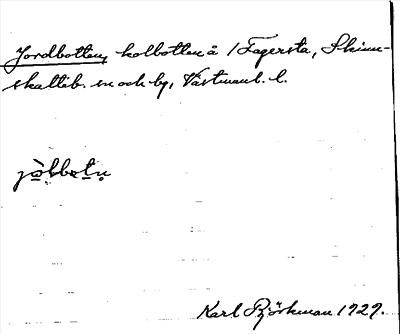 Jordbotten, kolbotten å 1 Fagersta, Skinn-
skatteb. sn och bg, Västmanl. l.
jòbbotṇ
Karl Björkman 1929.